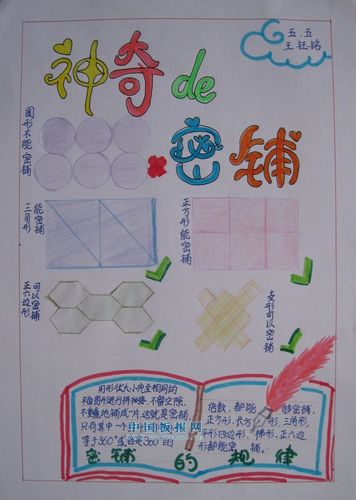 五.五
王钰铭
神奇de
密铺
圆形不能密铺
三角形
能密铺
正方形能密铺
正六边形
可以密铺
变形可以密铺
用形状大小完全相同的
平面图形进行拼接,不留空隙,
不重叠地铺成一片,这就是密铺。
只有其中一个
等于360°或者360°的
倍数,都能够密铺。
正方形,长方形,三角形,
平行四边形,梯形,正六边
形都能密铺。
中国板报网
密铺的规律